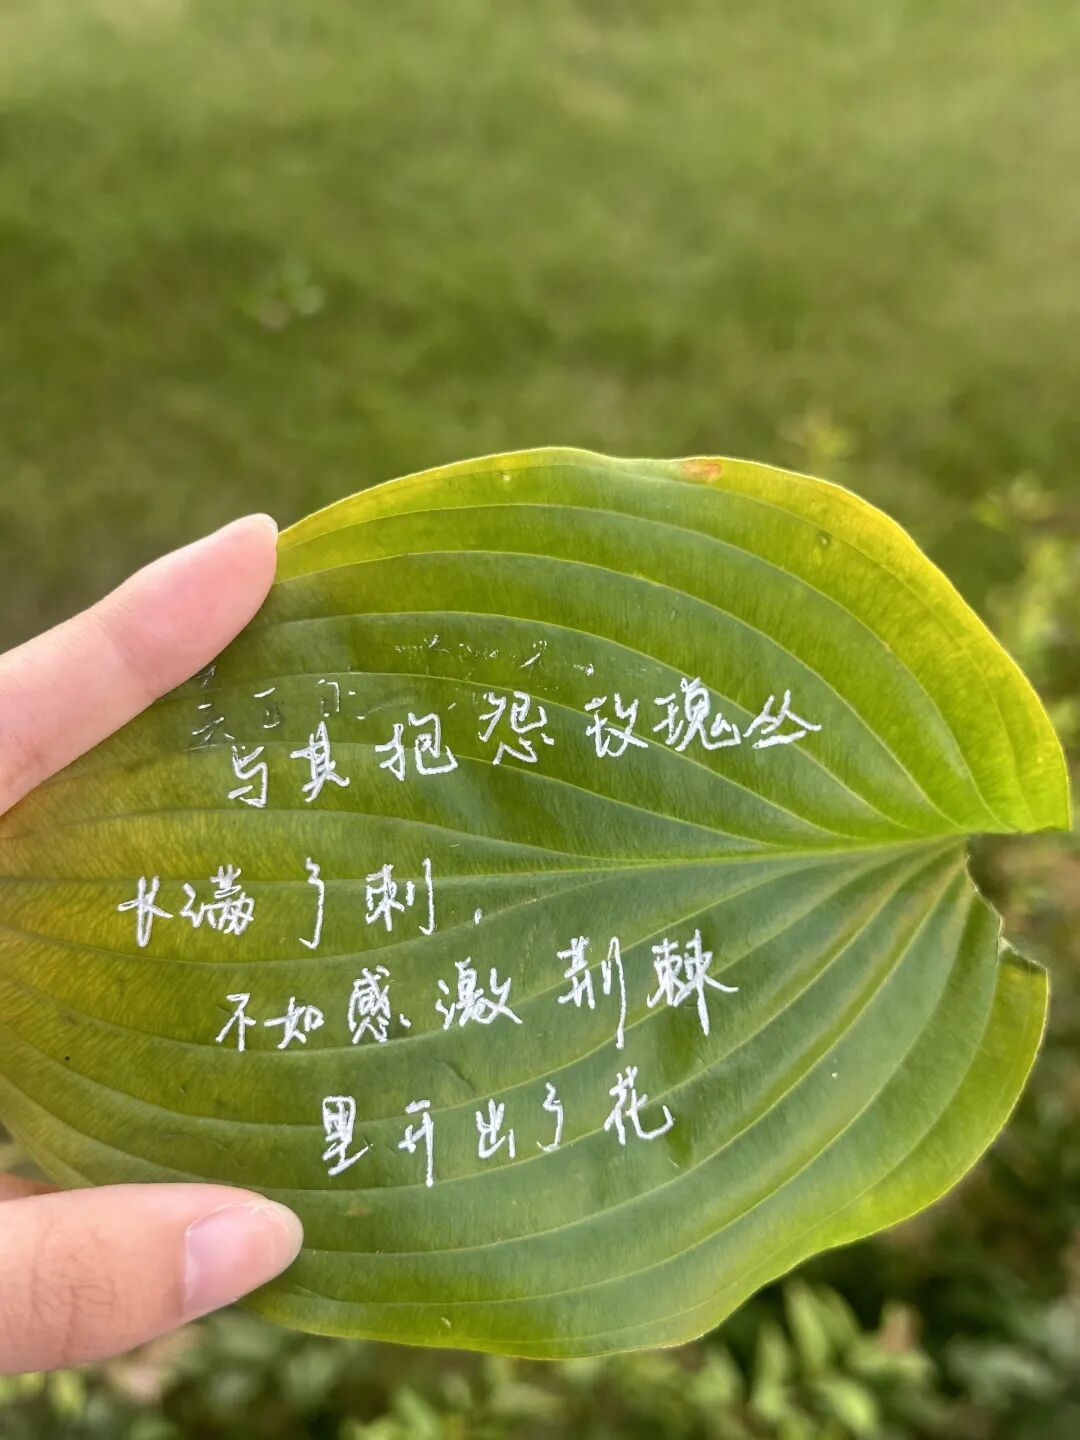 与其抱怨玫瑰丛
长满了刺，
不如感激荆棘
里开出了花